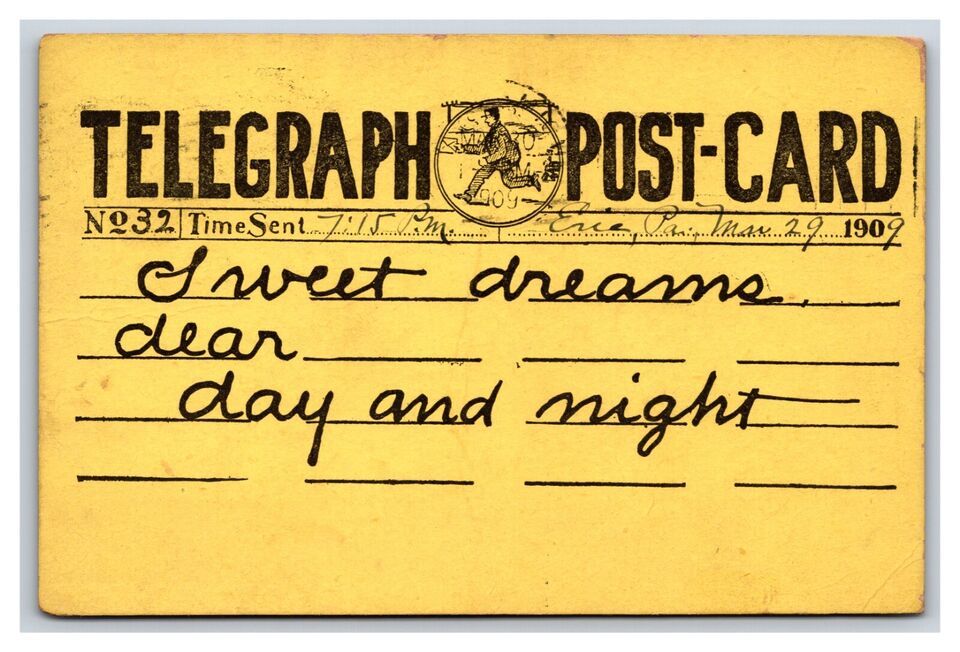 TELEGRAPH POST-CARD
No 32 Time Sent 7:15 P.M. Erie, Pa., Mar 29 1909
Sweet dreams,
dear
day and night